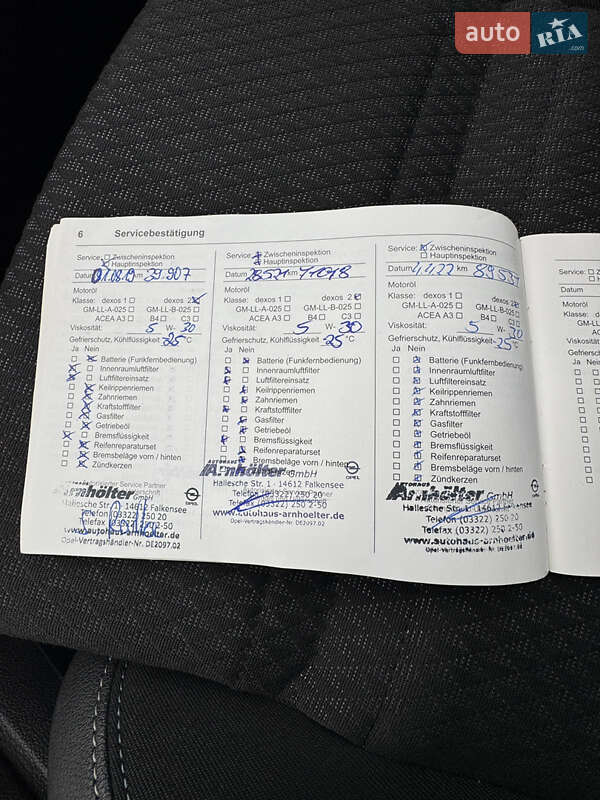 auto RIA .com
6 Servicebestätigung
Service: Zwischeninspektion
Hauptinspektion
Datum 01.08.19 km 29.907
Motoröl
Klasse: dexos 1 dexos 2
GM-LL-A-025 GM-LL-B-025
ACEA A3 B4 C3
Viskosität: 5 W- 30
Gefrierschutz, Kühlflüssigkeit -25 °C
Ja Nein
Batterie (Funkfernbedienung)
Innenraumluftfilter
Luftfiltereinsatz
Keilrippenriemen
Zahnriemen
Kraftstofffilter
Gasfilter
Getriebeöl
Bremsflüssigkeit
Reifenreparaturset
Bremsbeläge vorn / hinten
Zündkerzen
Autorisierter Service Partner
Arnhölter
GmbH
OPEL
Hallesche Str. 1 · 14612 Falkensee
Telefon (03322) 250 20
Telefax (03322) 250 2-50
www.autohaus-arnhoelter.de
Opel-Vertragshändler-Nr. DE2097.02
Service: Zwischeninspektion
Hauptinspektion
Datum km
Motoröl
Klasse: dexos 1 dexos 2
GM-LL-A-025 GM-LL-B-025
ACEA A3 B4 C3
Viskosität: 5 W- 30
Gefrierschutz, Kühlflüssigkeit -25 °C
Ja Nein
Batterie (Funkfernbedienung)
Innenraumluftfilter
Luftfiltereinsatz
Keilrippenriemen
Zahnriemen
Kraftstofffilter
Gasfilter
Getriebeöl
Bremsflüssigkeit
Reifenreparaturset
Bremsbeläge vorn / hinten
AUTOHAUS
Arnhölter GmbH
OPEL
Hallesche Str. 1 · 14612 Falkensee
Telefon (03322) 250 20
Telefax (03322) 250 2-50
www.autohaus-arnhoelter.de
Opel-Vertragshändler-Nr. DE2097.02
Service: Zwischeninspektion
Hauptinspektion
Datum 4.4.22 km 89537
Motoröl
Klasse: dexos 1 dexos 2
GM-LL-A-025 GM-LL-B-025
ACEA A3 B4 C3
Viskosität: 5 W- 30
Gefrierschutz, Kühlflüssigkeit -25 °C
Ja Nein
Batterie (Funkfernbedienung)
Innenraumluftfilter
Luftfiltereinsatz
Keilrippenriemen
Zahnriemen
Kraftstofffilter
Gasfilter
Getriebeöl
Bremsflüssigkeit
Reifenreparaturset
Bremsbeläge vorn / hinten
Zündkerzen
AUTOHAUS
Arnhölter GmbH
OPEL
Hallesche Str. 1 · 14612 Falkensee
Telefon (03322) 250 20
Telefax (03322) 250 2-50
www.autohaus-arnhoelter.de
Opel-Vertragshändler-Nr. DE2097.02
Service:
Datum
Motoröl
Klasse:
Viskosität:
Gefriersch
Ja Nein